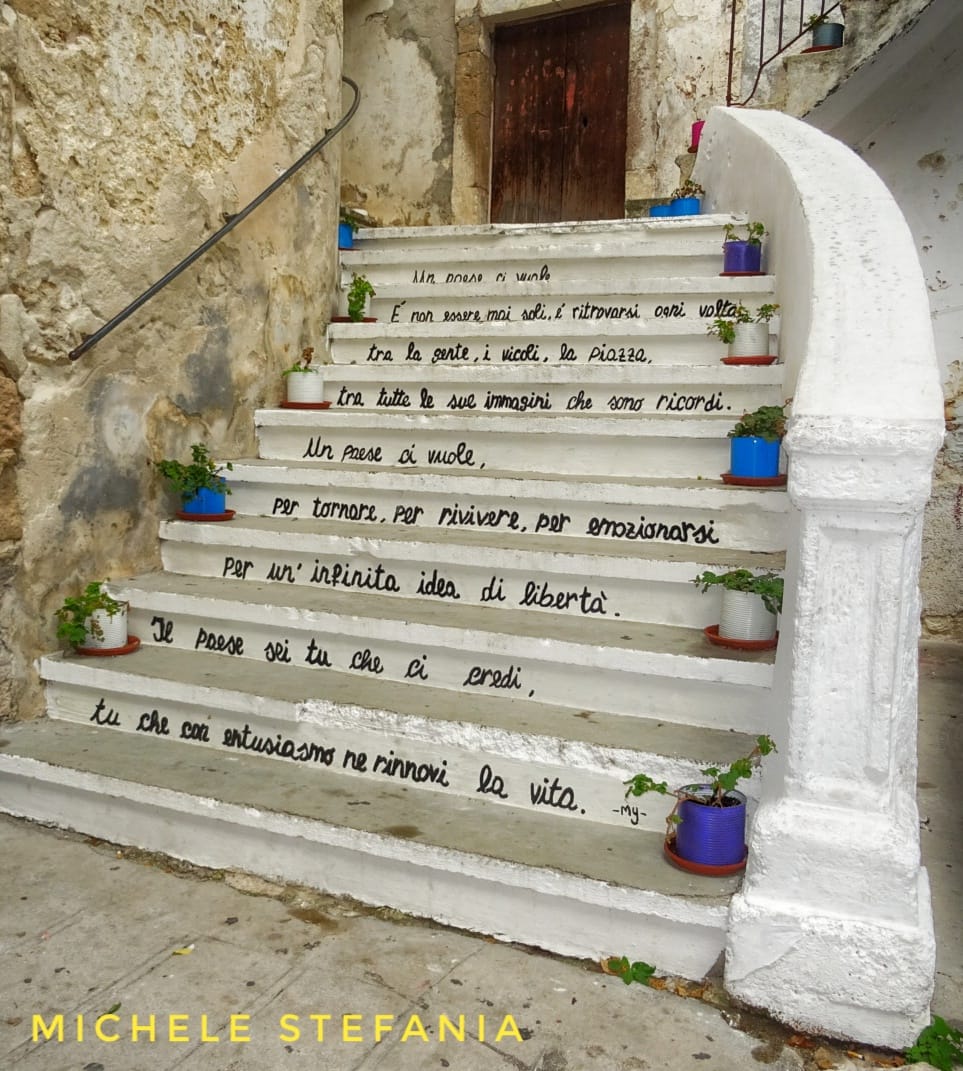 Un paese ci vuole
É non essere mai soli, é ritrovarsi ogni volta
tra la gente, i vicoli, la piazza,
tra tutte le sue immagini che sono ricordi.
Un paese ci vuole,
per tornare, per rivivere, per emozionarsi
per un' infinita idea di libertà.
Il paese sei tu che ci credi,
tu che con entusiasmo ne rinnovi la vita.
-My-
MICHELE STEFANIA